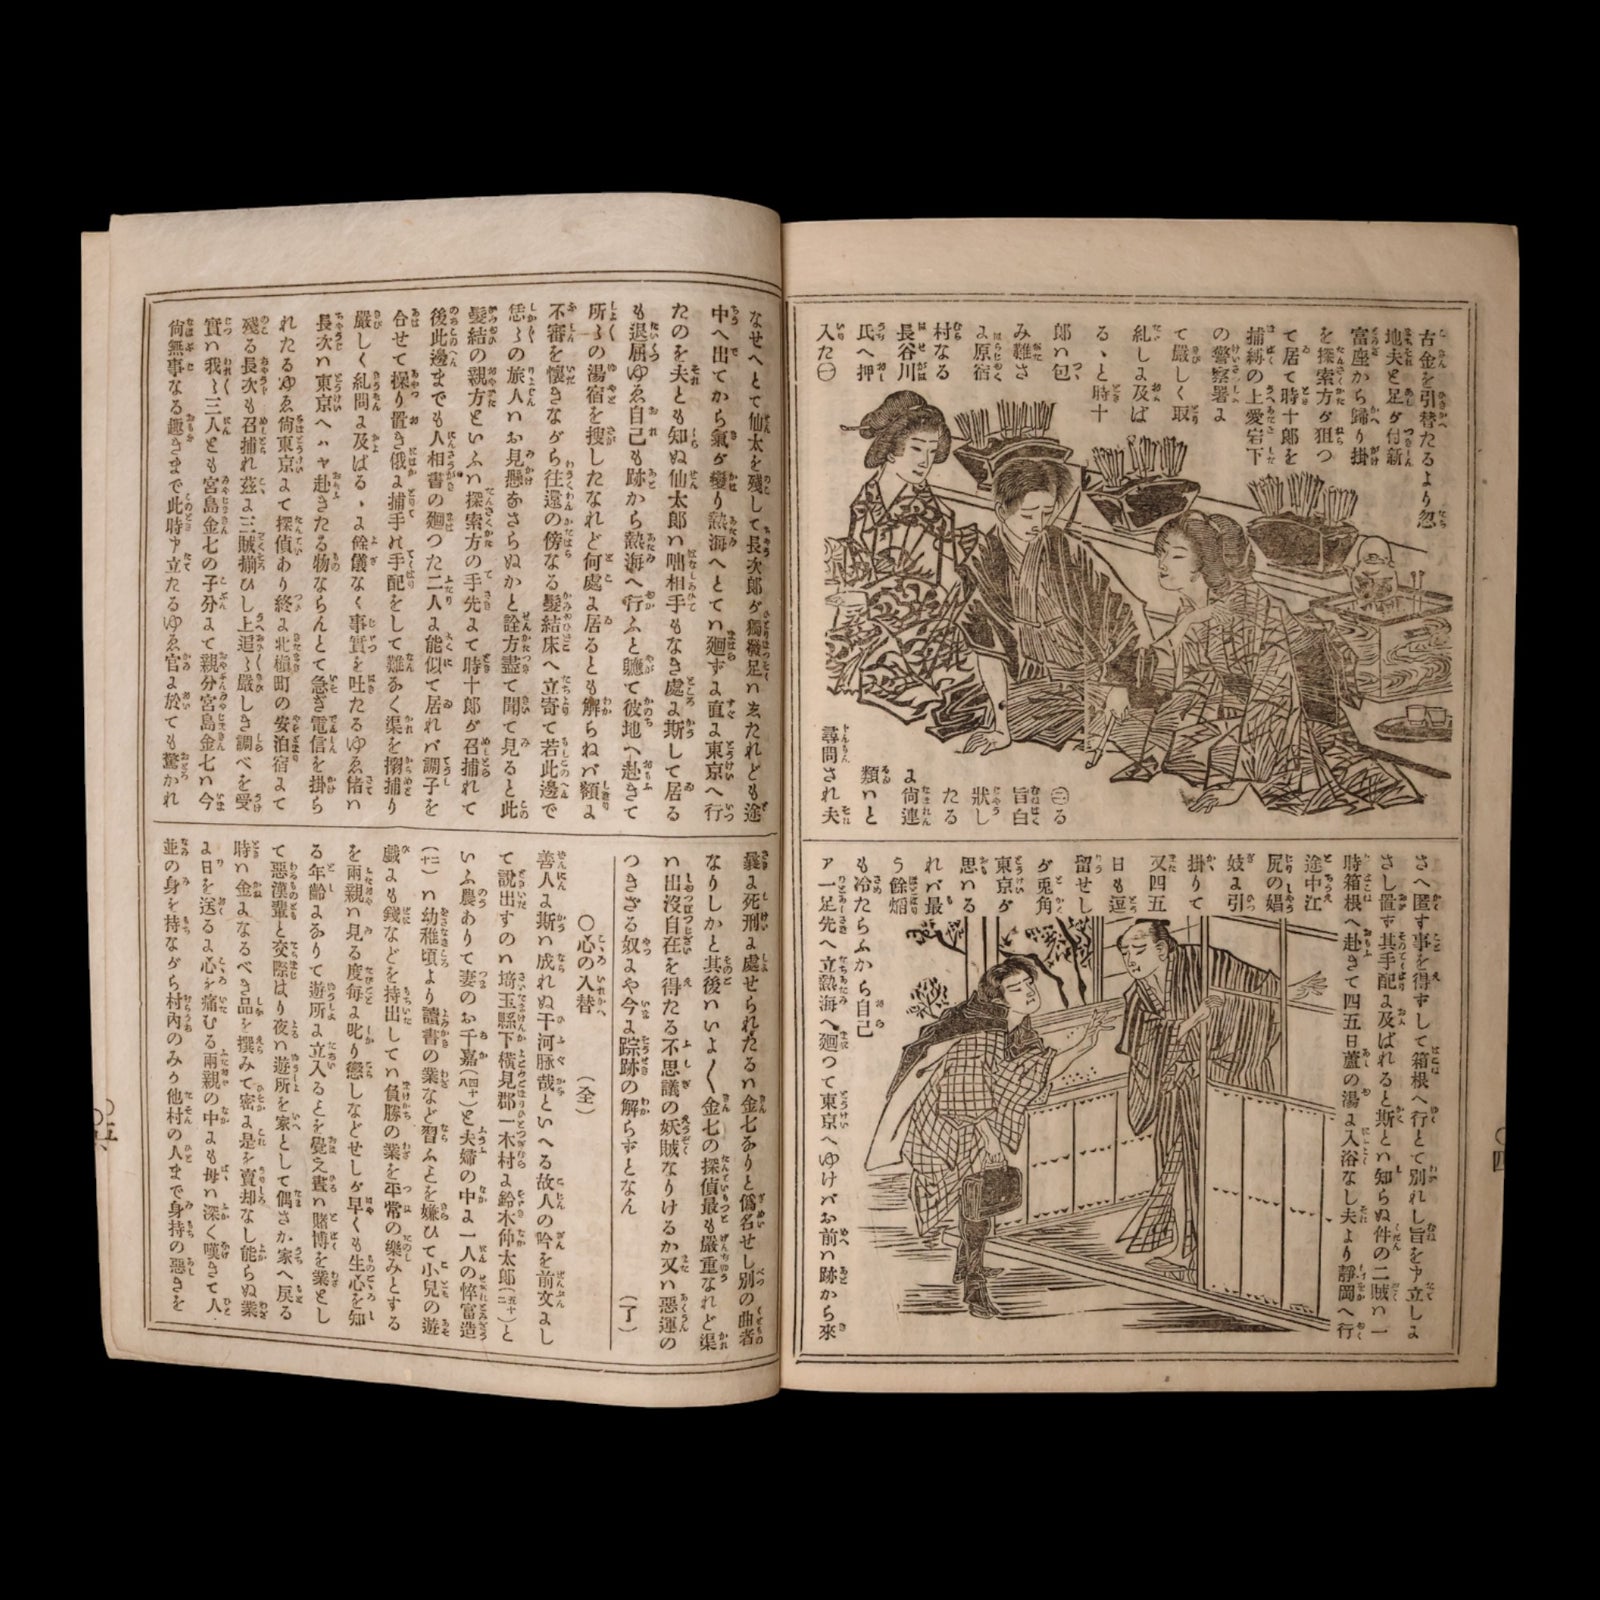 古金を引替たるより忽
地夫と足が付新
富座から歸り掛
を探索方が狙つ
て居て時十郎を
捕縛の上愛宕下
の警察署よ
て嚴しく取
糺しよ及ば
るゝと時十
郎ハ包
み難さ
よ原宿
村なる
長谷川
氏へ押
入た㊀
㊁る
旨白
狀し
たる
よ尙連
類ハと
尋問され夫
さへ匿す事を得ずして箱根へ行とて別れし旨を申立しよ
さし置ず其手配よ及ばれると斯とハ知らぬ件の二賊ハ一
時箱根へ赴きて四五日蘆の湯よ入浴なし夫より靜岡へ行
途中江
尻の娼
妓よ引
掛りて
又四五
日も逗
留せし
が兎角
東京が
思ハる
れバ最
う餘焔
も冷たらふから自己
ア一足先へ立熱海へ廻つて東京へゆけバお前ハ跡から來
なせへとて仙太を殘して長次郎が獨發足ハゑたれども途
中へ出てから氣が變り熱海へとてハ廻ずよ直よ東京へ行
たのを夫とも知ぬ仙太郎ハ咄相手もなき處よ斯して居る
も退屈ゆゑ自己も跡から熱海へ行ふと軈て彼地へ赴きて
所〻の湯宿を搜したなれど何處よ居るとも解らねバ頻よ
不審を懷きながら往還の傍なる髮結床へ立寄て若此邊で
恁〻の旅人ハお見懸なさらぬかと詮方盡て聞て見ると此
髮結の親方といふハ探索方の手先よて時十郎が召捕れて
後此邊までも人相書の廻つた二人よ能似て居れバ調子を
合せて操り置き俄よ捕手れ手配をして難なく渠を搦捕り
嚴しく糺問よ及ばるゝよ餘儀なく事實を吐たるゆゑ偖ハ
長次ハ東京へハヤ赴きたる物ならんとて急ぎ電信を掛ら
れたるゆゑ尙東京よて探偵あり終よ北槇町の安泊宿よて
殘る長次も召捕れ茲よ三賊揃ひし上追〻嚴しき調べを受
實ハ我〻三人とも宮島金七の子分よて親分宮島金七ハ今
尙無事なる趣きまで此時申立たるゆゑ官よ於ても驚かれ
曩よ死刑よ處せられたるハ金七なりと僞名せし別の曲者
なりしかと其後ハいよ〳〵金七の探偵最も嚴重なれど渠
ハ出沒自在を得たる不思議の妖賊なりけるか又ハ惡運の
つきざる奴よや今よ踪跡の解らずとなん　（了）
〇心の入替　（全）
善人よ斯ハ成れぬ干河豚哉といへる故人の吟を前文よし
て說出すのハ埼玉縣下橫見郡一木村よ鈴木仲太郎（五十二）と
いふ農ありて妻のお千嘉（四十八）と夫婦の中よ一人の悴富造
（二十）ハ幼稚頃より讀書の業など習ふとを嫌ひて小兒の遊
戲よも錢などを持出してハ負勝の業を平常の樂みとする
を兩親ハ見る度每よ叱り懲しなどせしが早くも生心を知
る年齡よなりて遊所よ立入るとを覺え晝ハ賭博を業とし
て惡漢輩と交際はり夜ハ遊所を家として偶さか家へ戾る
時ハ金よなるべき品を撰みて密よ是を賣却なし能らぬ業
よ日を送るよ心を痛むる兩親の中よも母ハ深く嘆きて人
並の身を持ながら村內のみか他村の人まで身持の惡きを